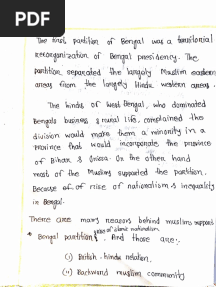 PDF
The first partition of Bengal was a territorial
reorganization of Bengal presidency. The
partition separated the largely Muslim eastern
areas from the largely Hindu western areas.
The hindus of west Bengal, who dominated
Bengals business & rural life, complained the
division would make them a minority in a
province that would incorporate the province
of Bihar & Orissa. On the other hand
most of the Muslims supported the partition.
Because of rise of nationalism & inequality
in Bengal.
There are many reasons behind muslims support
* Bengal partition rise of islamic nationalism. And those are:
(i) British-hindu relation.
(ii) Backward muslim community